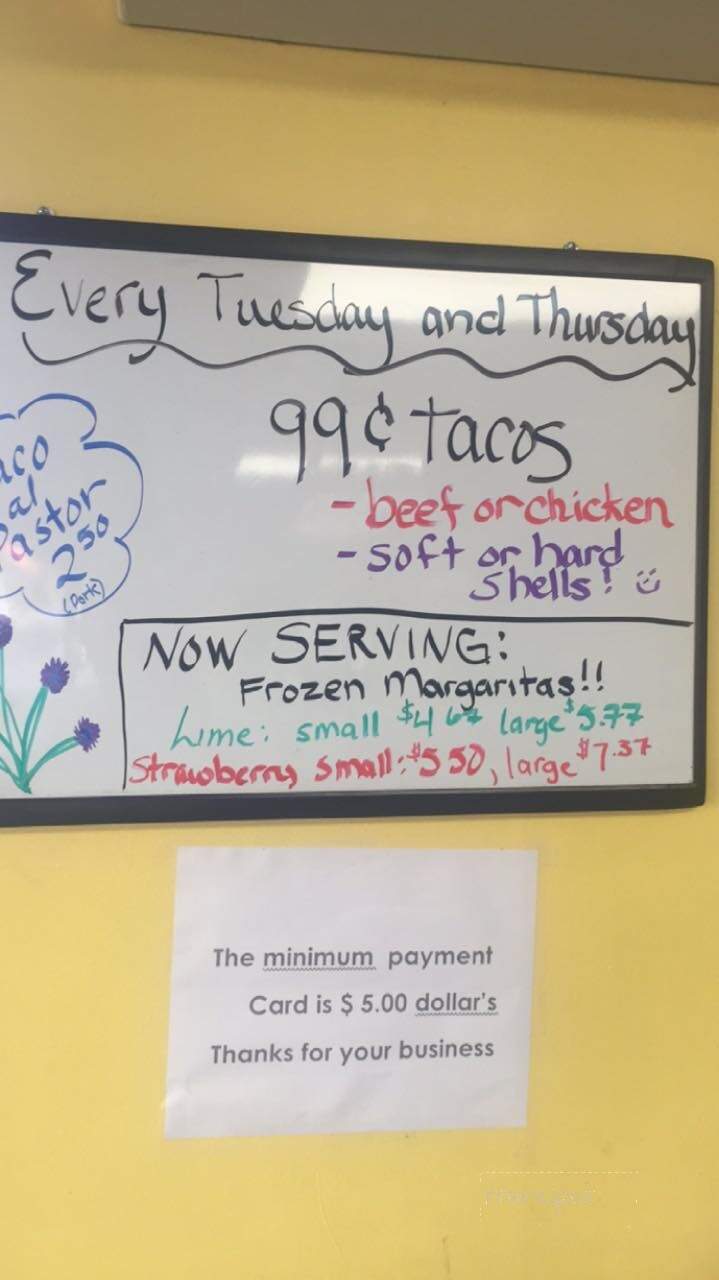 Every Tuesday and Thursday
99¢ tacos
- beef or chicken
- soft or hard
shells!
aco
al
Pastor
2.50
(Pork)
NOW SERVING:
Frozen Margaritas!!
Lime: small $4.67 large $5.77
Strawberry small: $5.50, large $7.37
The minimum payment
Card is $ 5.00 dollar's
Thanks for your business